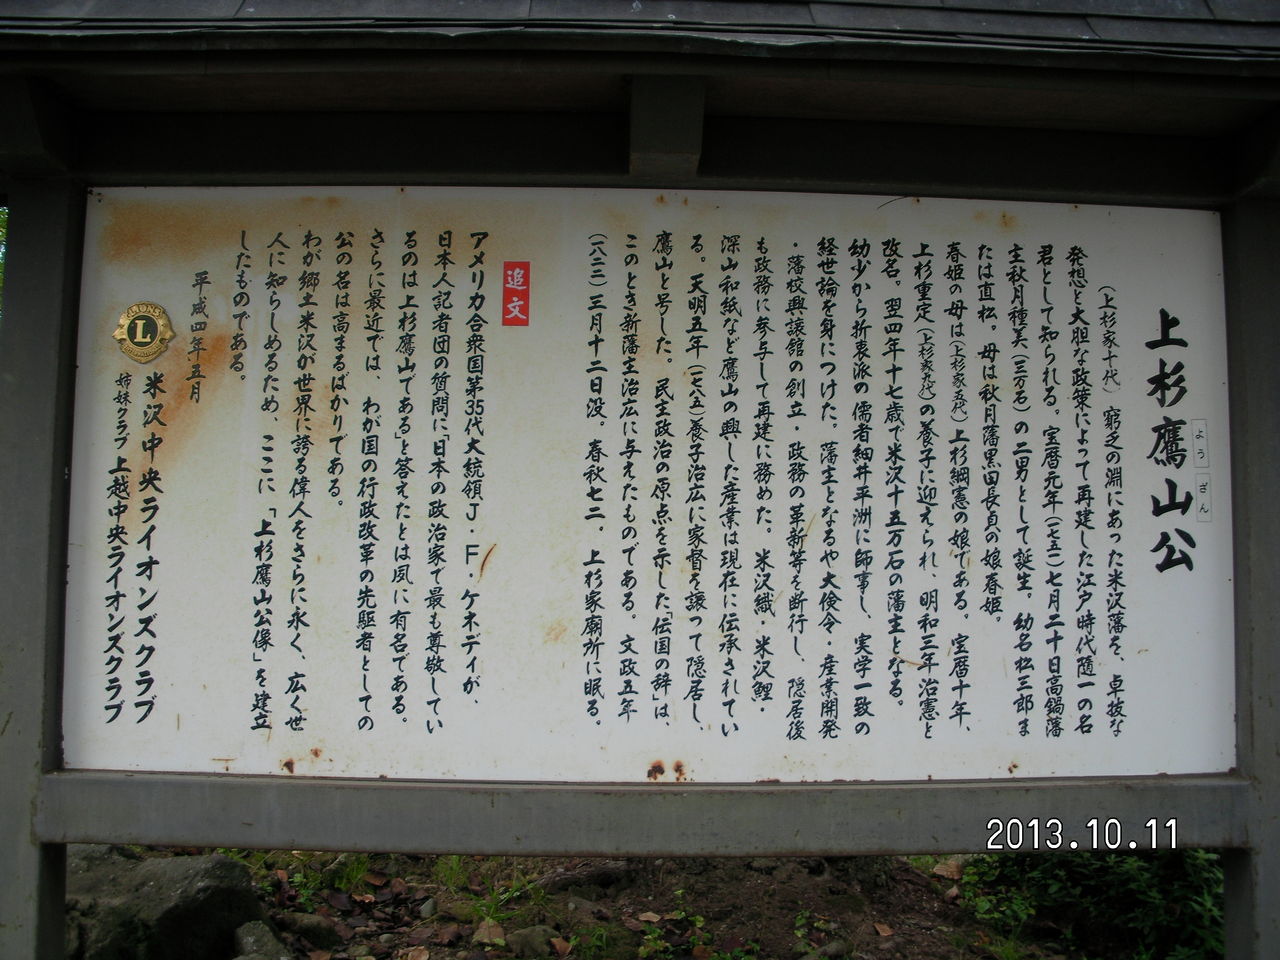 上杉鷹山公
よう
ざん
（上杉家十代）　窮乏の淵にあった米沢藩を、卓抜な
発想と大胆な政策によって再建した江戸時代随一の名
君として知られる。宝暦元年（一七五一）七月二十日高鍋藩
主秋月種美（三万石）の二男として誕生。幼名松三郎ま
たは直松。母は秋月藩黒田長貞の娘春姫。
春姫の母は（上杉家五代）上杉綱憲の娘である。宝暦十年、
上杉重定（上杉家九代）の養子に迎えられ、明和三年治憲と
改名。翌四年十七歳で米沢十五万石の藩主となる。
幼少から折衷派の儒者細井平洲に師事し、実学一致の
経世論を身につけた。藩主となるや大倹令・産業開発
・藩校興譲館の創立・政務の革新等を断行し、隠居後
も政務に参与して再建に務めた。米沢織・米沢鯉・
深山和紙など鷹山の興した産業は現在に伝承されてい
る。天明五年（一七八五）養子治広に家督を譲って隠居し、
鷹山と号した。民主政治の原点を示した「伝国の辞」は、
このとき新藩主治広に与えたものである。文政五年
（一八二二）三月十二日没。春秋七二。上杉家廟所に眠る。
追文
アメリカ合衆国第35代大統領J・F・ケネディが、
日本人記者団の質問に「日本の政治家で最も尊敬してい
るのは上杉鷹山である」と答えたとは夙に有名である。
さらに最近では、わが国の行政改革の先駆者としての
公の名は高まるばかりである。
わが郷土米沢が世界に誇る偉人をさらに永く、広く世
人に知らしめるため、ここに「上杉鷹山公像」を建立
したものである。
平成四年五月
LIONS
L
INTERNATIONAL
米沢中央ライオンズクラブ
姉妹クラブ 上越中央ライオンズクラブ
2013.10.11